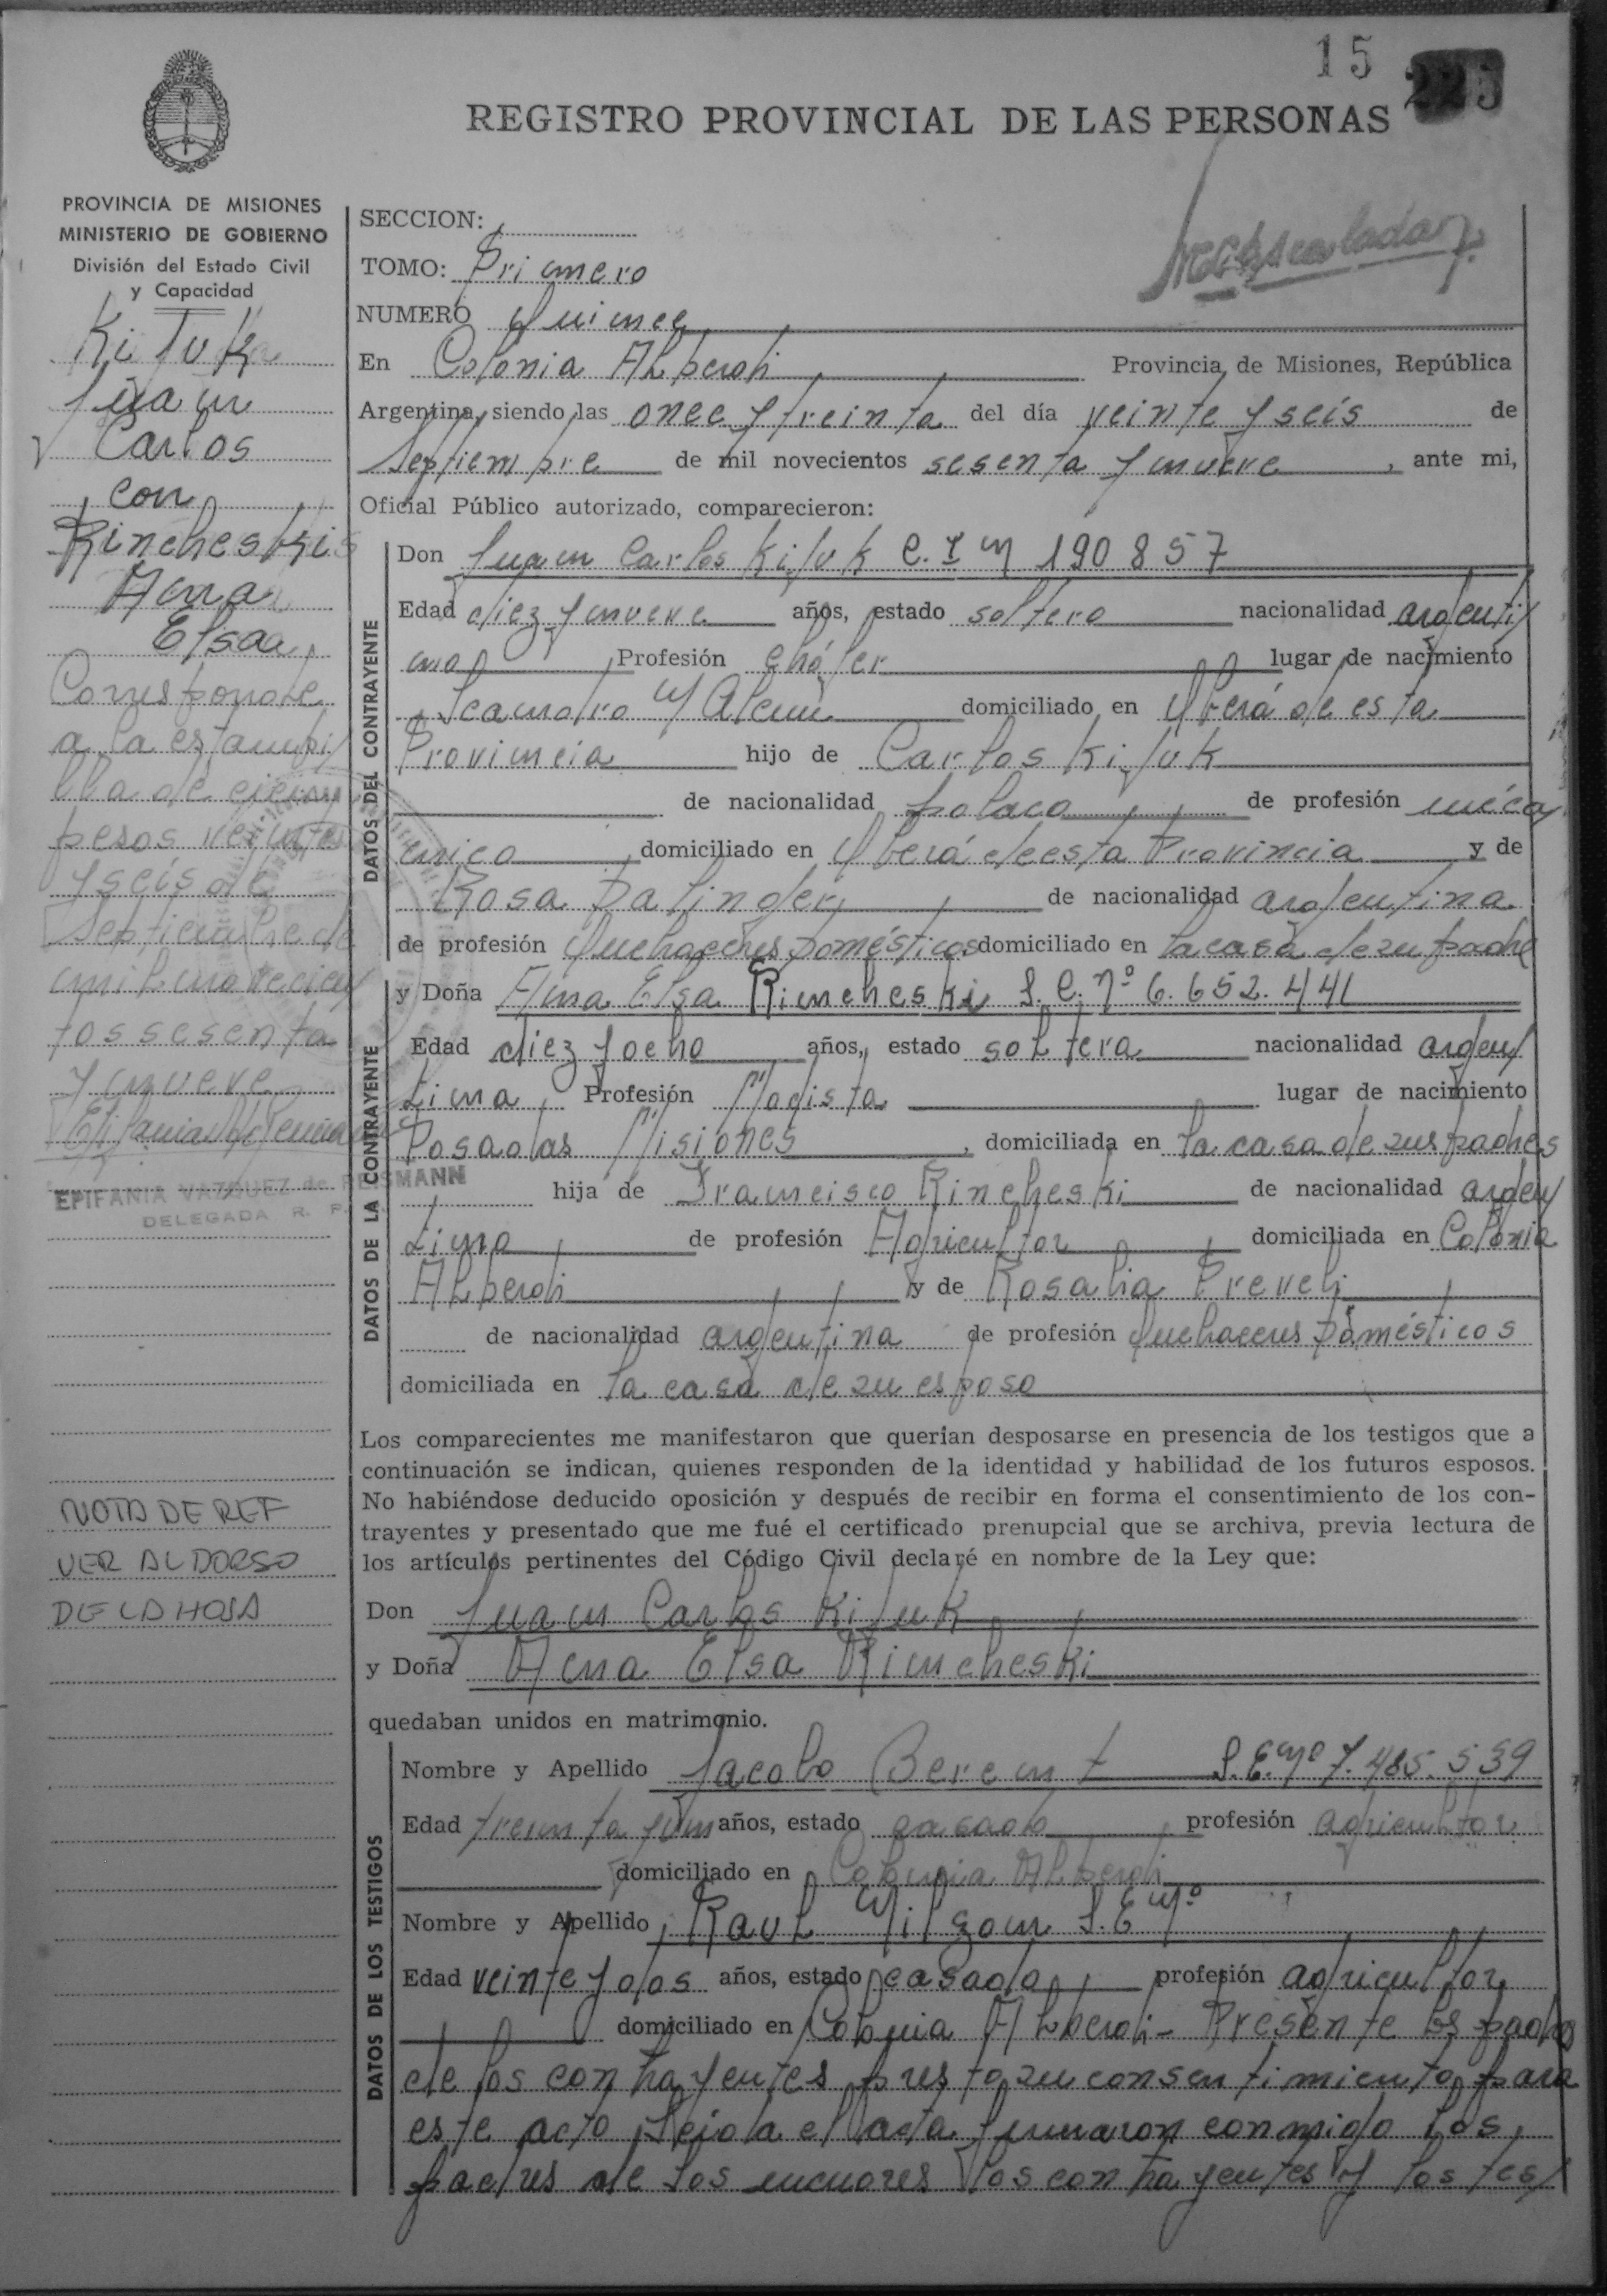 15
REGISTRO PROVINCIAL DE LAS PERSONAS
PROVINCIA DE MISIONES
MINISTERIO DE GOBIERNO
División del Estado Civil
y Capacidad
Juan
Carlos
con
Rincheski
Ana
Elsa
Corresponde
a la estampi/
lla de cien
pesos veinte
y seis de
Septiembre de
mil novecien/
tos sesenta
y nueve
EPIFANIA VAZQUEZ de REISMANN
DELEGADA R. P.
NOTA DE REF
VER AL DORSO
DE LA HOJA
SECCION:
TOMO: Primero
NUMERO Quince
En Colonia Alberdi Provincia de Misiones, República
Argentina, siendo las once y treinta del día veinte y seis de
Septiembre de mil novecientos sesenta y nueve, ante mi,
Oficial Público autorizado, comparecieron:
DATOS DEL CONTRAYENTE
Don Juan Carlos Kifuk C. I N 190857
Edad diez y nueve años, estado soltero nacionalidad argenti/
no Profesión chófer lugar de nacimiento
Leandro N Alem domiciliado en Yberá de esta
Provincia hijo de Carlos Kifuk
de nacionalidad polaco de profesión mécá/
nico domiciliado en Yberá de esta Provincia y de
Rosa Dalinger de nacionalidad argentina
de profesión Quehaceres Domésticos domiciliado en la casa de su padre
DATOS DE LA CONTRAYENTE
y Doña Ana Elsa Rincheski L. C. Nº 6.652.441
Edad diez y ocho años, estado soltera nacionalidad argen/
tina Profesión Modista lugar de nacimiento
Posadas Misiones, domiciliada en la casa de sus padres
hija de Francisco Rincheski de nacionalidad argen/
tino de profesión Agricultor domiciliada en Colonia
Alberdi y de Rosalia
de nacionalidad argentina de profesión Quehaceres Domésticos
domiciliada en la casa de su esposo
Los comparecientes me manifestaron que querían desposarse en presencia de los testigos que a
continuación se indican, quienes responden de la identidad y habilidad de los futuros esposos.
No habiéndose deducido oposición y después de recibir en forma el consentimiento de los con-
trayentes y presentado que me fué el certificado prenupcial que se archiva, previa lectura de
los artículos pertinentes del Código Civil declaré en nombre de la Ley que:
Don Juan Carlos Kifuk
y Doña Ana Elsa Rincheski
quedaban unidos en matrimonio.
DATOS DE LOS TESTIGOS
Nombre y Apellido Jacobo Berent L. E. Nº 7.485.539
Edad treinta y un años, estado casado profesión agricultor
domiciliado en Colonia Alberdi
Nombre y Apellido Raul Nilzon L. E Nº
Edad veinte y dos años, estado casado profesión agricultor
domiciliado en Colonia Alberdi - Presente los padres
de los contrayentes presto su consentimiento para
este acto Leida el acta firmaron conmigo los
padres de los menores los contrayentes y los tes/